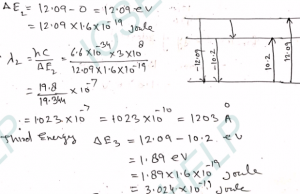 ΔE₂ = 12.09 - 0 = 12.09 eV
= 12.09 × 1.6 × 10⁻¹⁹ Joule
λ₂ = hc / ΔE₂ = 6.6 × 10⁻³⁴ × 3 × 10⁸ / 12.09 × 1.6 × 10⁻¹⁹
= 19.8 / 19.344 × 10⁻⁷
= 1023 × 10⁻⁷ = 1023 × 10⁻¹⁰ = 1203 A⁰
Third Energy ΔE₃ = 12.09 - 10.2 eV
= 1.89 eV
= 1.89 × 1.6 × 10⁻¹⁹ Joule
= 3.024 × 10⁻¹⁹ Joule
-12.09
-10.2
10.2
12.09